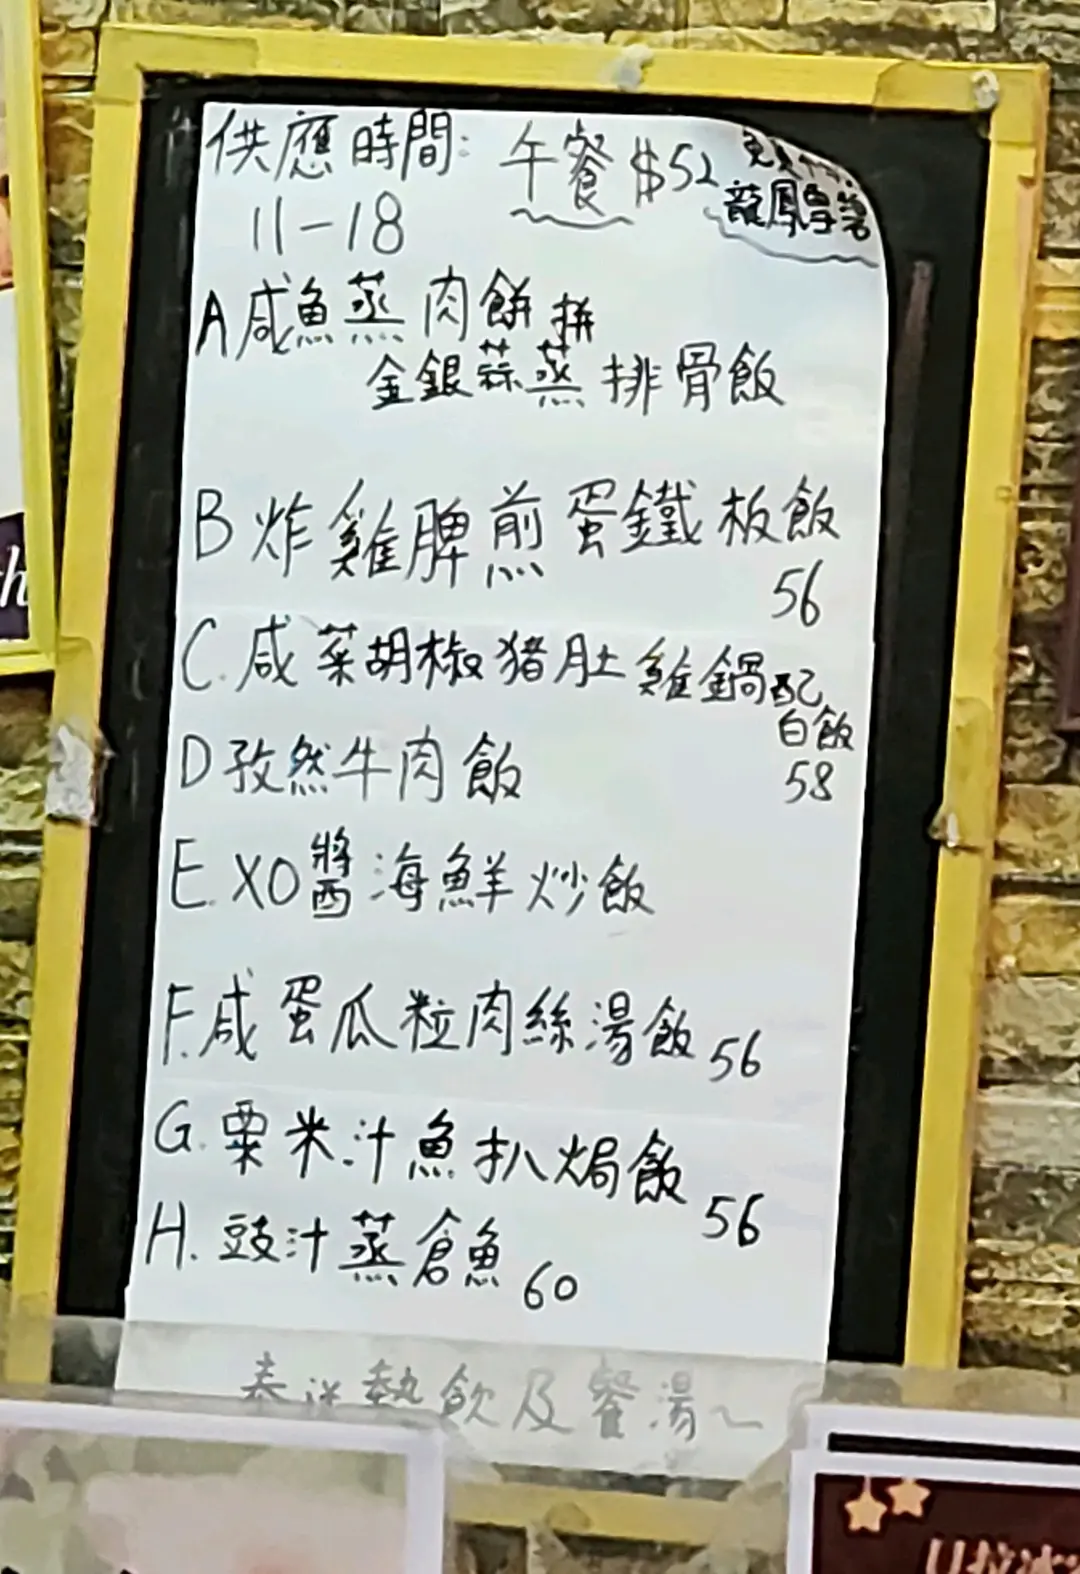 供應時間: 午餐 $52
11-18
A 咸魚蒸肉餅拼
金銀蒜蒸排骨飯
B 炸雞脾煎蛋鐵板飯
56
C. 咸菜胡椒猪肚雞鍋配
白飯
58
D 孜然牛肉飯
E. XO醬海鮮炒飯
F. 咸蛋瓜粒肉絲湯飯 56
G. 粟米汁魚扒焗飯
56
H. 豉汁蒸倉魚 60
奉送熱飲及餐湯~